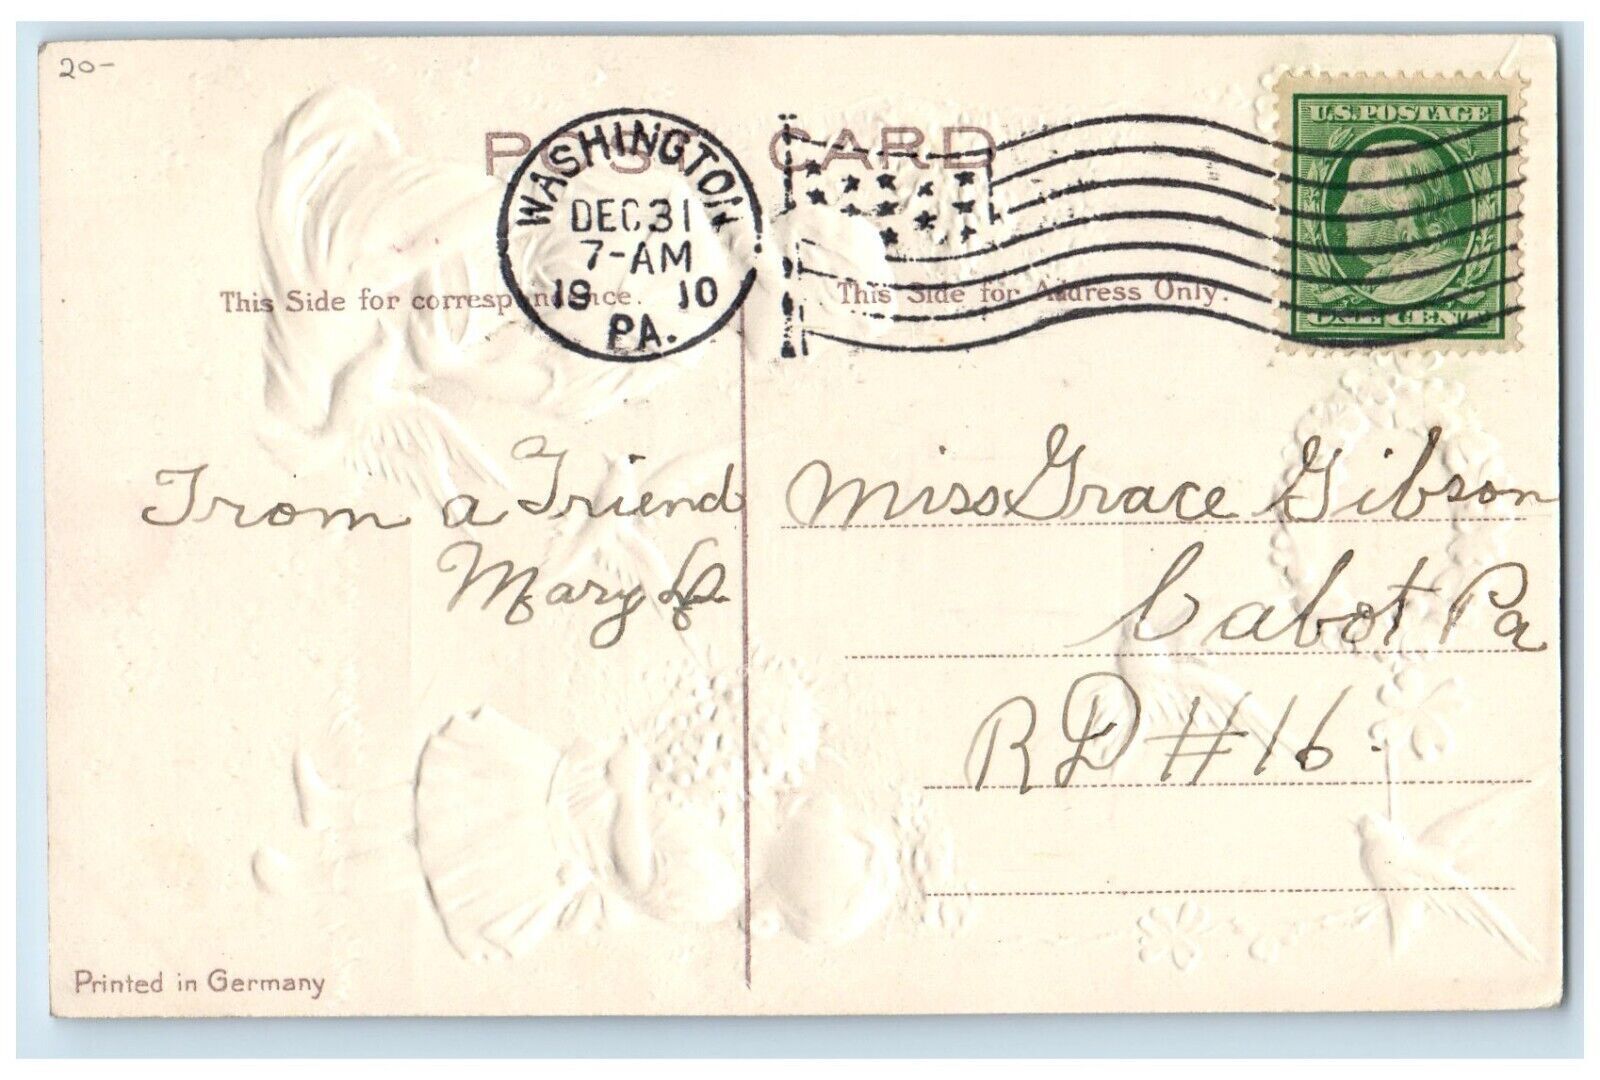 20-
POST CARD
WASHINGTON
DEC 31
7-AM
19 10
PA.
U.S. POSTAGE
ONE CENT
This Side for correspondence.
This Side for Address Only.
From a Friend
Mary
Miss Grace Gibson
Cabot Pa
RD #16.
Printed in Germany